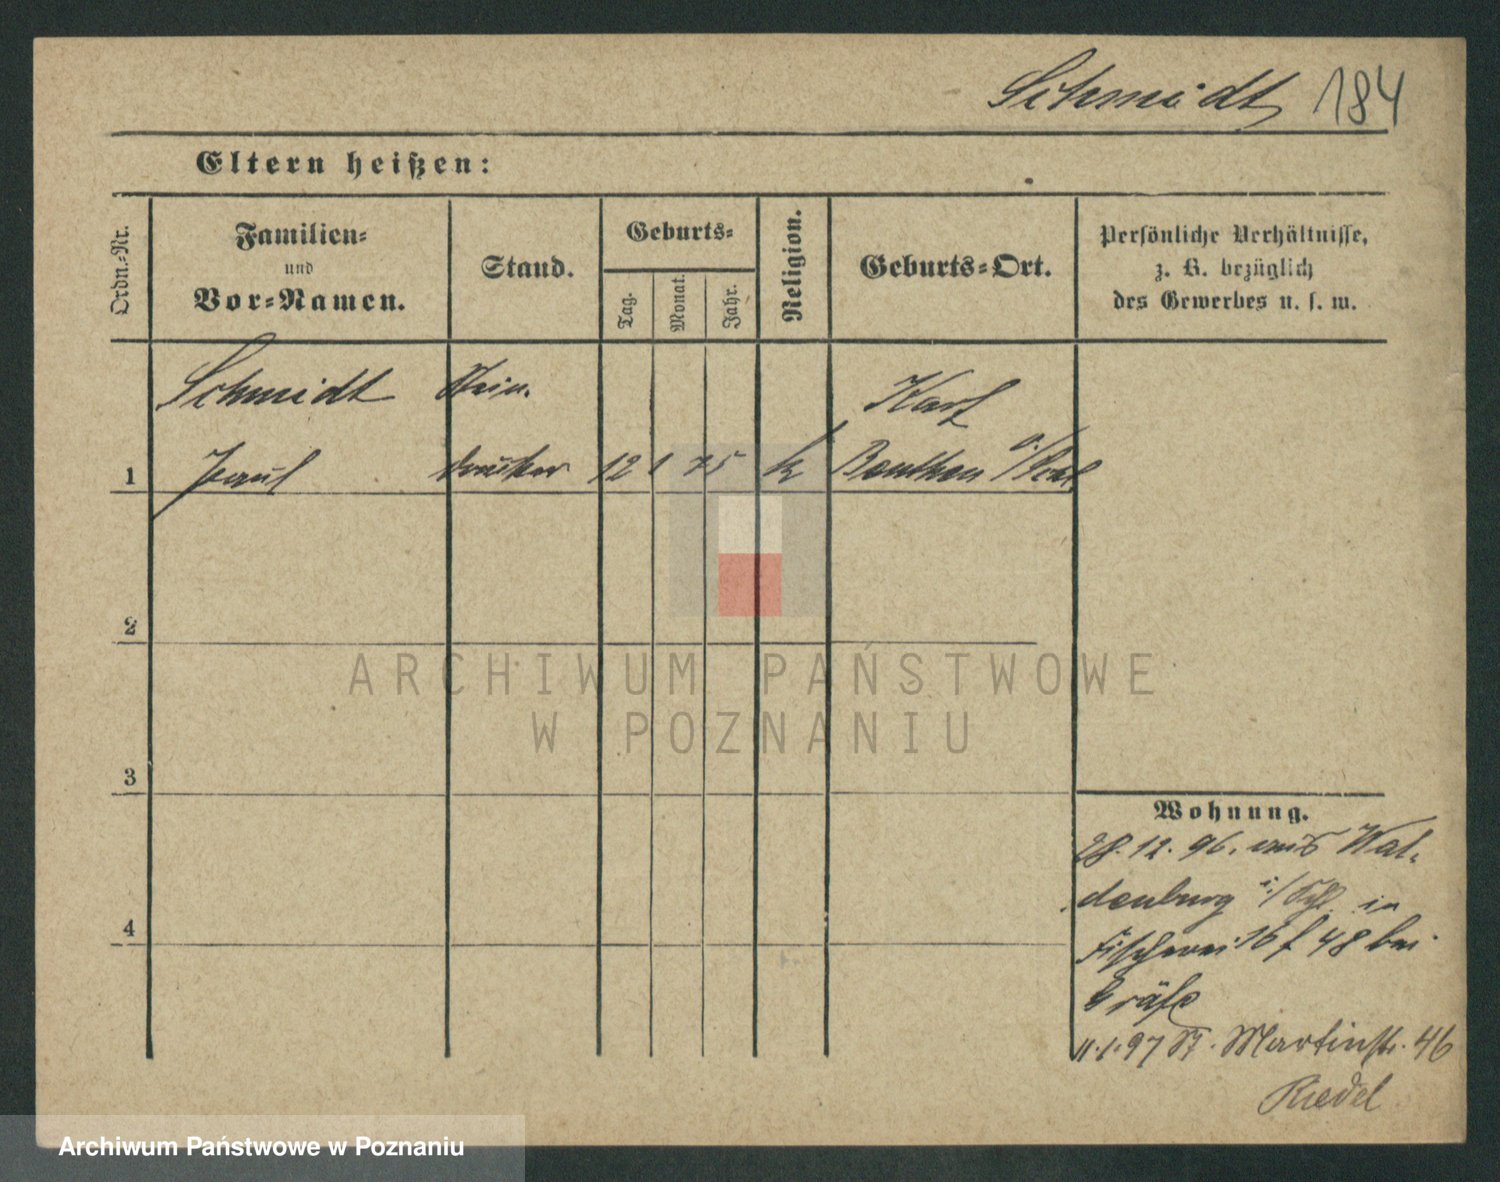 Schmidt 184
Eltern heißen:
Ordn.-Nr.
Familien-
und
Vor-Namen.
Stand.
Geburts-
Tag.
Monat.
Jahr.
Religion.
Geburts-Ort.
Persönliche Verhältnisse,
z. B. bezüglich
des Gewerbes u. s. w.
Schmidt Stein.
Karf
1 Paul drucker 12 1 75 k Beuthen
2
ARCHIWUM PAŃSTWOWE
W POZNANIU
3
Wohnung.
28.12.96. aus Wal-
denburg i/Schl. in
4
Fischerei 16 f 48 bei
Gräfe
11.1.97 St. Martinstr. 46
Riedel
Archiwum Państwowe w Poznaniu